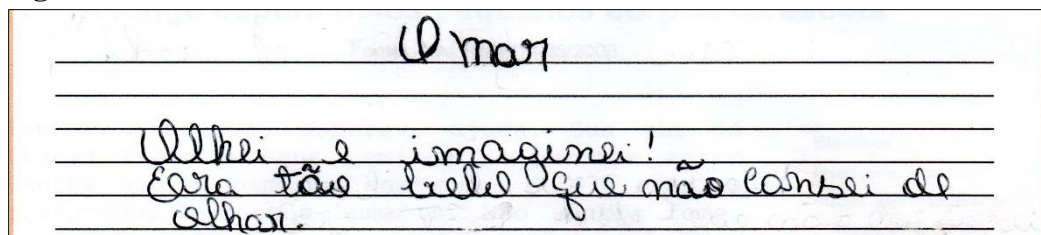 O mar
Olhei e imaginei!
Eara tão belo que não cansei de
olhar.